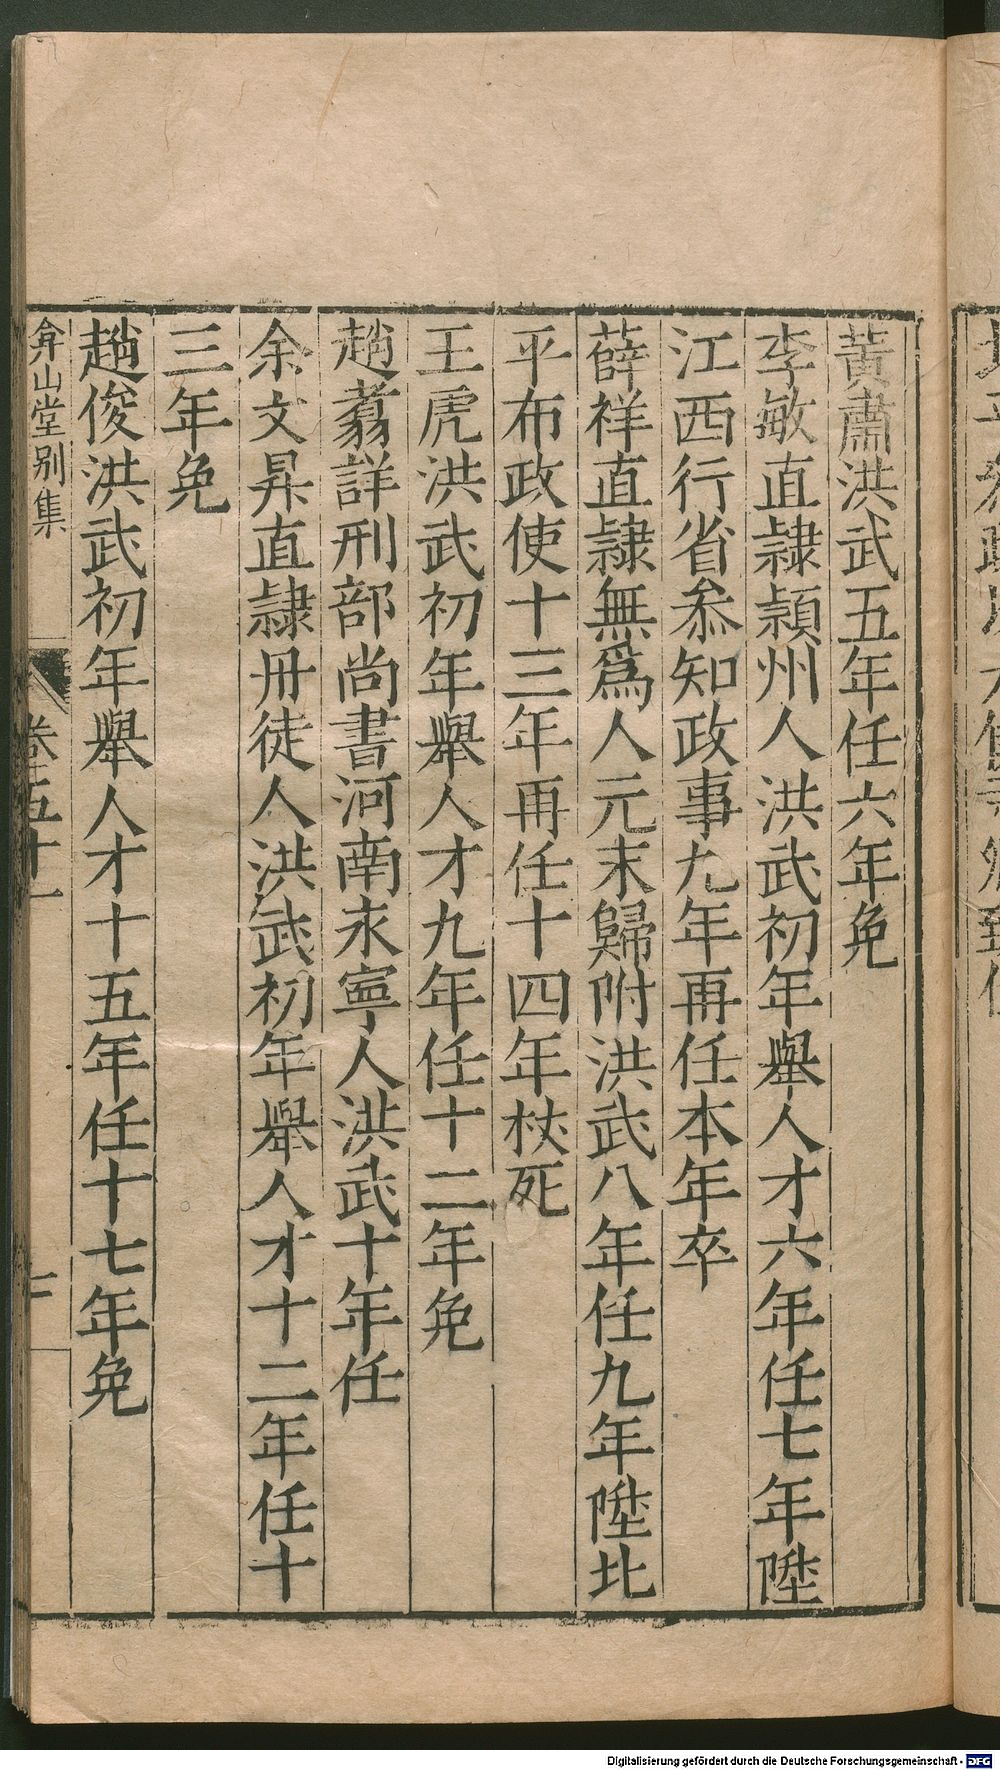 黃肅洪武五年任六年免
李敏直隷潁州人洪武初年舉人才六年任七年陞
江西行省叅知政事九年再任本年卒
薛祥直隷無爲人元末歸附洪武八年任九年陞北
平布政使十三年再任十四年杖死
王虎洪武初年舉人才九年任十二年免
趙翥詳刑部尚書河南永寧人洪武十年任
余文昇直隷丹徒人洪武初年舉人才十二年任十
三年免
趙俊洪武初年舉人才十五年任十七年免
弇山堂别集
卷五十一
Digitalisierung gefördert durch die Deutsche Forschungsgemeinschaft - DFG